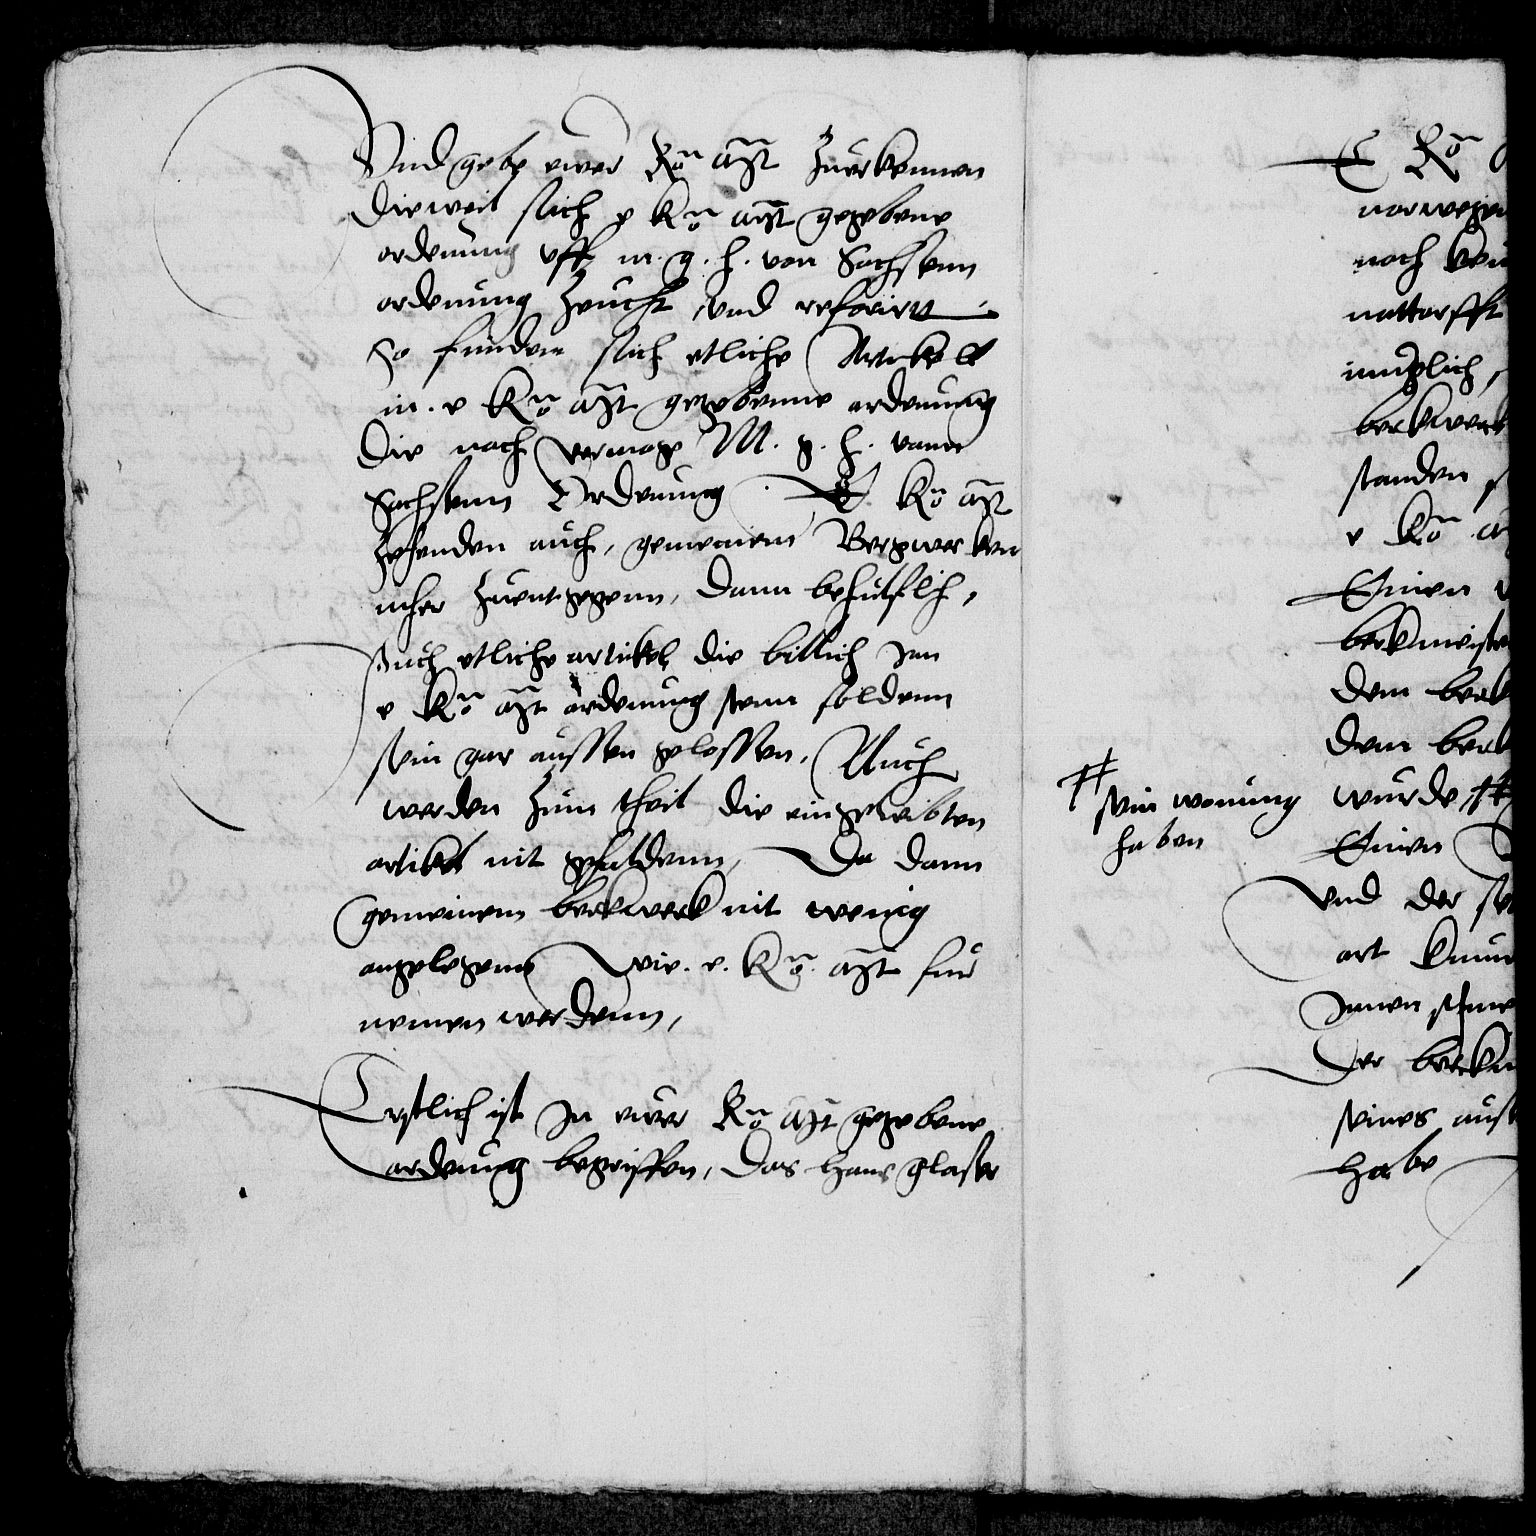 Vnd gebe ewer Ko mat zuerkennen
dieweil sich e Ko mat gegebene
ordenung vff m. g. h. von Sachssenn
ordenung zeucht, vnd referirtt
so finden sich etliche Artickell
in. e Ko mat gegebenne ordenung
die nach vermoge M. g. h. vonn
Sachssenn Ordenung E. Ko mat
zehenden auch, gemeinem Bergwercken
mher zuentgegenn, dann behulflich,
Auch etliche artickel die billich Inn
e Ko mat ordenung stenn soldenn
sein gar aussen gelossen, Auch
werden zum theil die eingeleibten
artikel nit gehaldenn, Do dann
gemeinem berkwerk nit wenig
angelegenn Wie. e. Ko. mat fur
nemen werdenn,
Erstlich ist In ewer Ko mat gegebene
ordenung begriffen, das Hans Glaser
E Ko
norwegen
noch
notturfft
muglich,
berkwerk
standen
e Ko
Einen
berkmeister
dem berk
dem berk
wurde,
sein wonung
haben
Einen
vnd der
art
Innen
Der berckm
seines
Habe